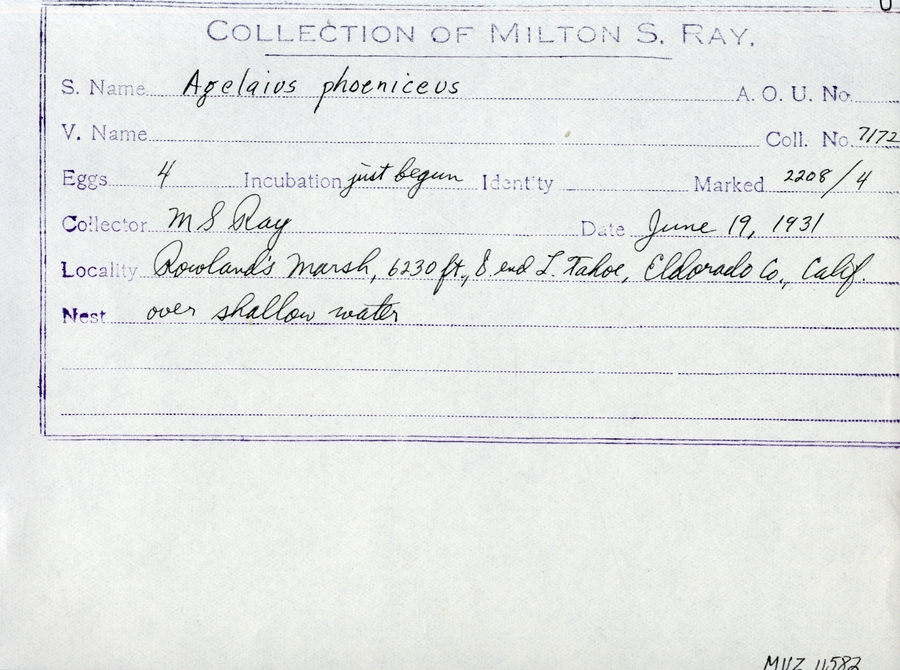 COLLECTION OF MILTON S. RAY.
S. Name Agelaius phoeniceus A. O. U. No.
V. Name Coll. No. 7172
Eggs 4 Incubation just begun Identity Marked 2208/4
Collector M S Ray Date June 19, 1931
Locality Rowland's Marsh, 6230 ft., S end L. Tahoe, Eldorado Co., Calif.
Nest over shallow water
MVZ 11582